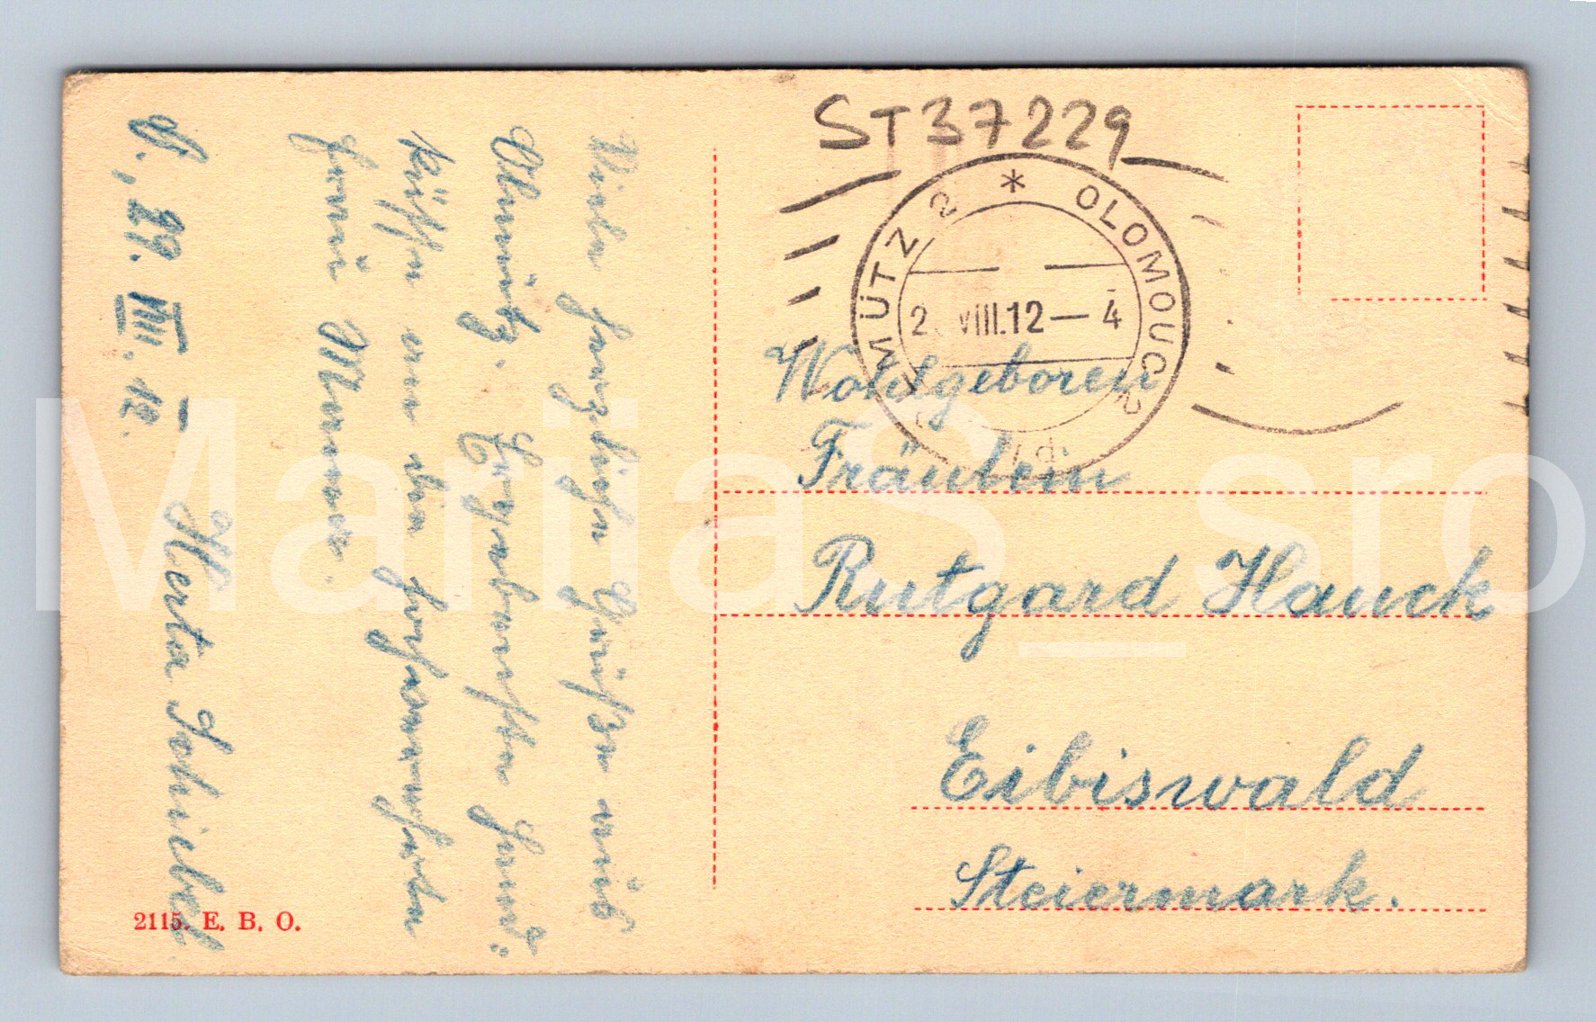 Viele herzliche Grüße aus
Olmütz. Ergebenste Hand-
küsse an die hochverehrte
Frau Mama.
O., 29. VIII. 12. Herta Schiebel.
2115. E. B. O.
ST37229
OLMÜTZ 2 * OLOMOUC 2
2 VIII.12—4
Wohlgeboren
Fräulein
Rutgard Hauck
Eibiswald
Steiermark.
MariiaS_sro